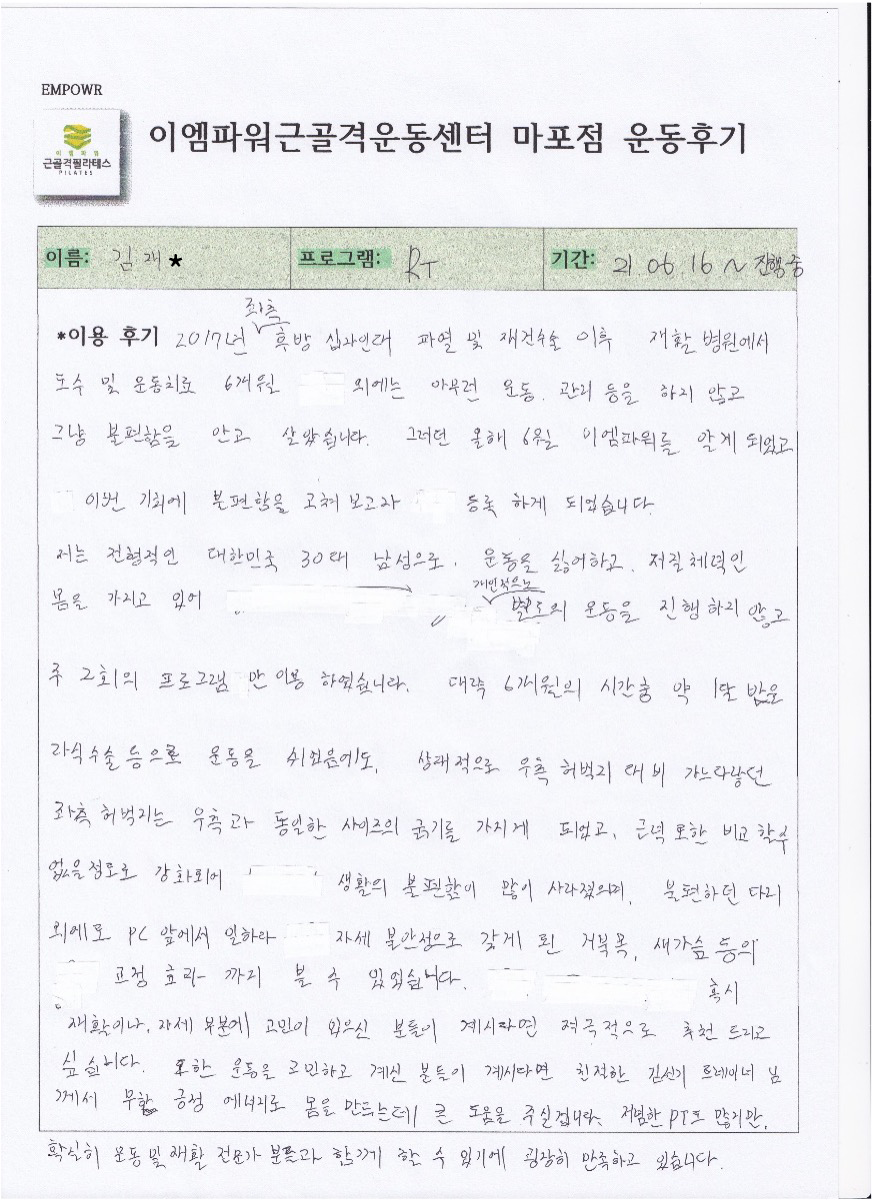 EMPOWR
이엠파워
근골격필라테스
PILATES
이엠파워근골격운동센터 마포점 운동후기
이름: 김재★ 프로그램: RT 기간: 21.06.16 ~ 진행중
좌측
*이용 후기 2017년 후방 십자인대 파열 및 재건수술 이후 재활 병원에서
도수 및 운동치료 6개월 외에는 아무런 운동, 관리 등을 하지 않고
그냥 불편함을 안고 살았습니다. 그러던 올해 6월 이엠파워를 알게 되었고
이번 기회에 불편함을 고쳐 보고자 등록 하게 되었습니다.
저는 전형적인 대한민국 30대 남성으로, 운동을 싫어하고, 저질체력인
개인적으로
몸을 가지고 있어 별도의 운동을 진행하지 않고
주 2회의 프로그램 만 이용 하였습니다. 대략 6개월의 시간중 약 1달 반은
라식수술 등으로 운동을 쉬었음에도, 상대적으로 우측 허벅지 대비 가느다랗던
좌측 허벅지는 우측과 동일한 사이즈의 굵기를 가지게 되었고, 근력 또한 비교할수
없을정도로 강화되어 생활의 불편함이 많이 사라졌으며, 불편하던 다리
외에도 PC 앞에서 일하라 자세 불안정으로 갖게 된 거북목, 새가슴 등의
교정 효과 까지 볼 수 있었습니다. 혹시
재활이나, 자세 부분에 고민이 있으신 분들이 계시다면 적극적으로 추천 드리고
싶습니다. 또한 운동을 고민하고 계신 분들이 계시다면 친절한 김신기 트레이너 님
께서 무한 긍정 에너지로 몸을 만드는데 큰 도움을 주실겁니다. 저렴한 PT도 많지만,
확실히 운동 및 재활 전문가 분들과 함께 할 수 있기에 굉장히 만족하고 있습니다.